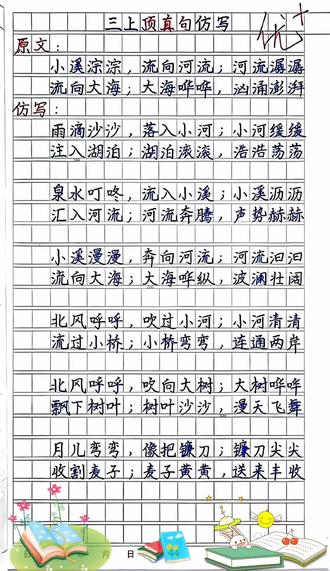 三上顶真句仿写
优+
原文：
小溪淙淙，流向河流；河流潺潺
流向大海；大海哗哗，汹涌澎湃
仿写：
雨滴沙沙，落入小河；小河缓缓
注入湖泊；湖泊滚滚，浩浩荡荡
泉水叮咚，流入小溪；小溪沥沥
汇入河流；河流奔腾，声势赫赫
小溪漫漫，奔向河流；河流汩汩
流向大海；大海哗纵，波澜壮阔
北风呼呼，吹过小河；小河清清
流过小桥；小桥弯弯，连通两岸
北风呼呼，吹向大树；大树哗哗
飘下树叶；树叶沙沙，漫天飞舞
月儿弯弯，像把镰刀；镰刀尖尖
收割麦子；麦子黄黄，送来丰收
月 日